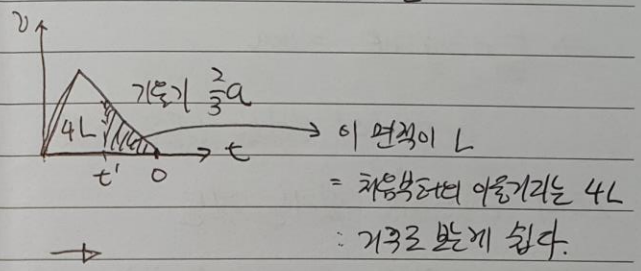 v
기울기 2/3 a
4L
t
t' 0
이 면적이 L
= 처음부터의 이동거리는 4L
: 거꾸로 보는게 쉽다.